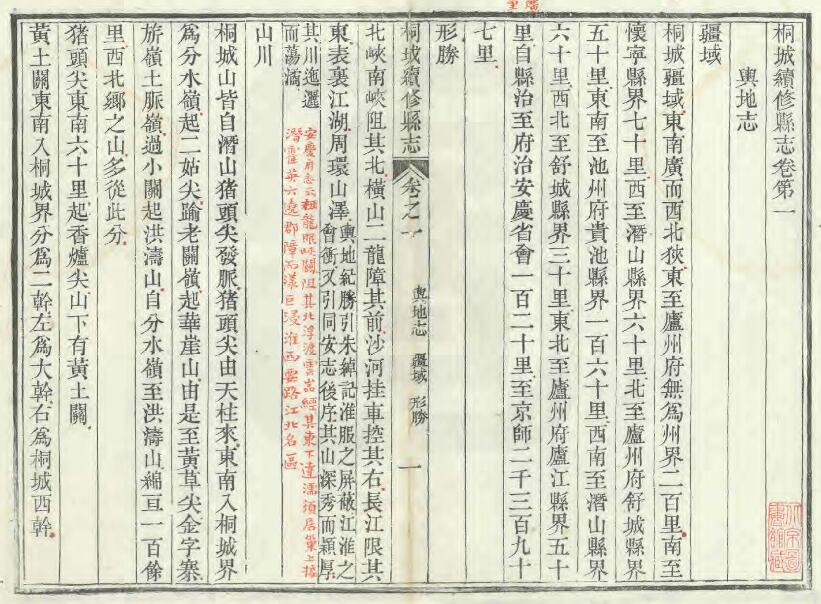 桐城續修縣志卷第一
輿地志
疆域
桐城疆域東南廣而西北狹東至廬州府無爲州界二百里南至
懷寧縣界七十里西至潛山縣界六十里北至廬州府舒城縣界
五十里東南至池州府貴池縣界一百六十里西南至潛山縣界
六十里西北至舒城縣界三十里東北至廬州府廬江縣界五十
里自縣治至府治安慶省會一百二十里至京師二千三百九十
七里
形勝
桐城續修縣志 卷之一 輿地志 疆域 形勝 一
北峽南峽阻其北橫山二龍障其前沙河挂車控其右長江限其
東表裏江湖周環山澤輿地紀勝引朱綽記淮服之屏蔽江淮之
會衝又引同安志後序其山深秀而穎厚
其川迤邐
而蕩潏
安慶府志云祖龍眠峽關阻其北浮渡雲崙經其東下達濡須居巢上接
潛霍英六遠郡障而漾巨浸淮西要路江北名區
山川
桐城山皆自潛山猪頭尖發脈猪頭尖由天柱來東南入桐城界
爲分水嶺起二姑尖踰老關嶺起華崖山由是至黃草尖金字寨
旂嶺土脈嶺過小關起洪濤山自分水嶺至洪濤山綿亘一百餘
里西北鄉之山多從此分
猪頭尖東南六十里起香爐尖山下有黃土關
黃土關東南入桐城界分爲二幹左爲大幹右爲桐城西幹